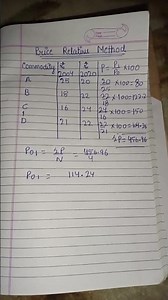 Price Relative Method
Commodity 2004 2020 P = P1/P0 x100
A 25 20 20/25 x100 = 80
B 18 22 22/18 x100 = 122.2
C 16 24 24/16 x100 = 150
D 21 22 22/21 x100 = 104.76
ΣP = 456.96
P01 = ΣP/N = 456.96/4
P01 = 114.24